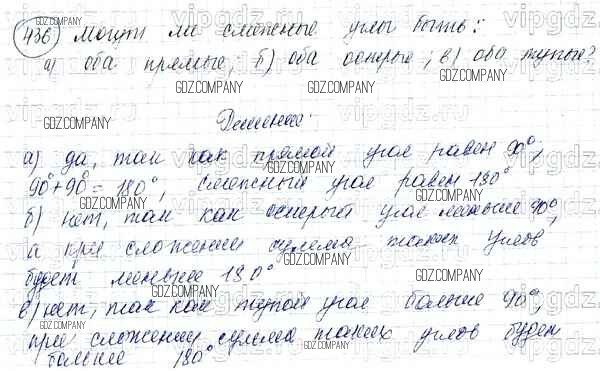 436 Могут ли смежные углы быть:
а) оба прямые; б) оба острые; в) оба тупые?
Решение:
а) да, так как прямой угол равен 90°;
90°+90°=180°, смежный угол равен 180°
б) нет, так как острый угол меньше 90°,
а при сложении сумма таких углов
будет меньше 180°
в) нет, так как тупой угол больше 90°,
при сложении сумма таких углов будет
больше 180°